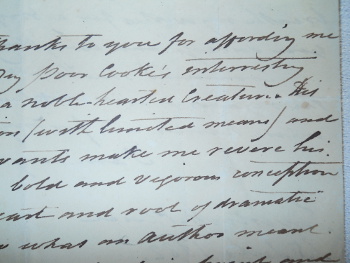 thanks to you for affording me
poor Cooke's
a noble-hearted creature. His
(with limited means) and
wants make me revere his
bold and vigorous conception
and root of dramatic
what an author meant.
and